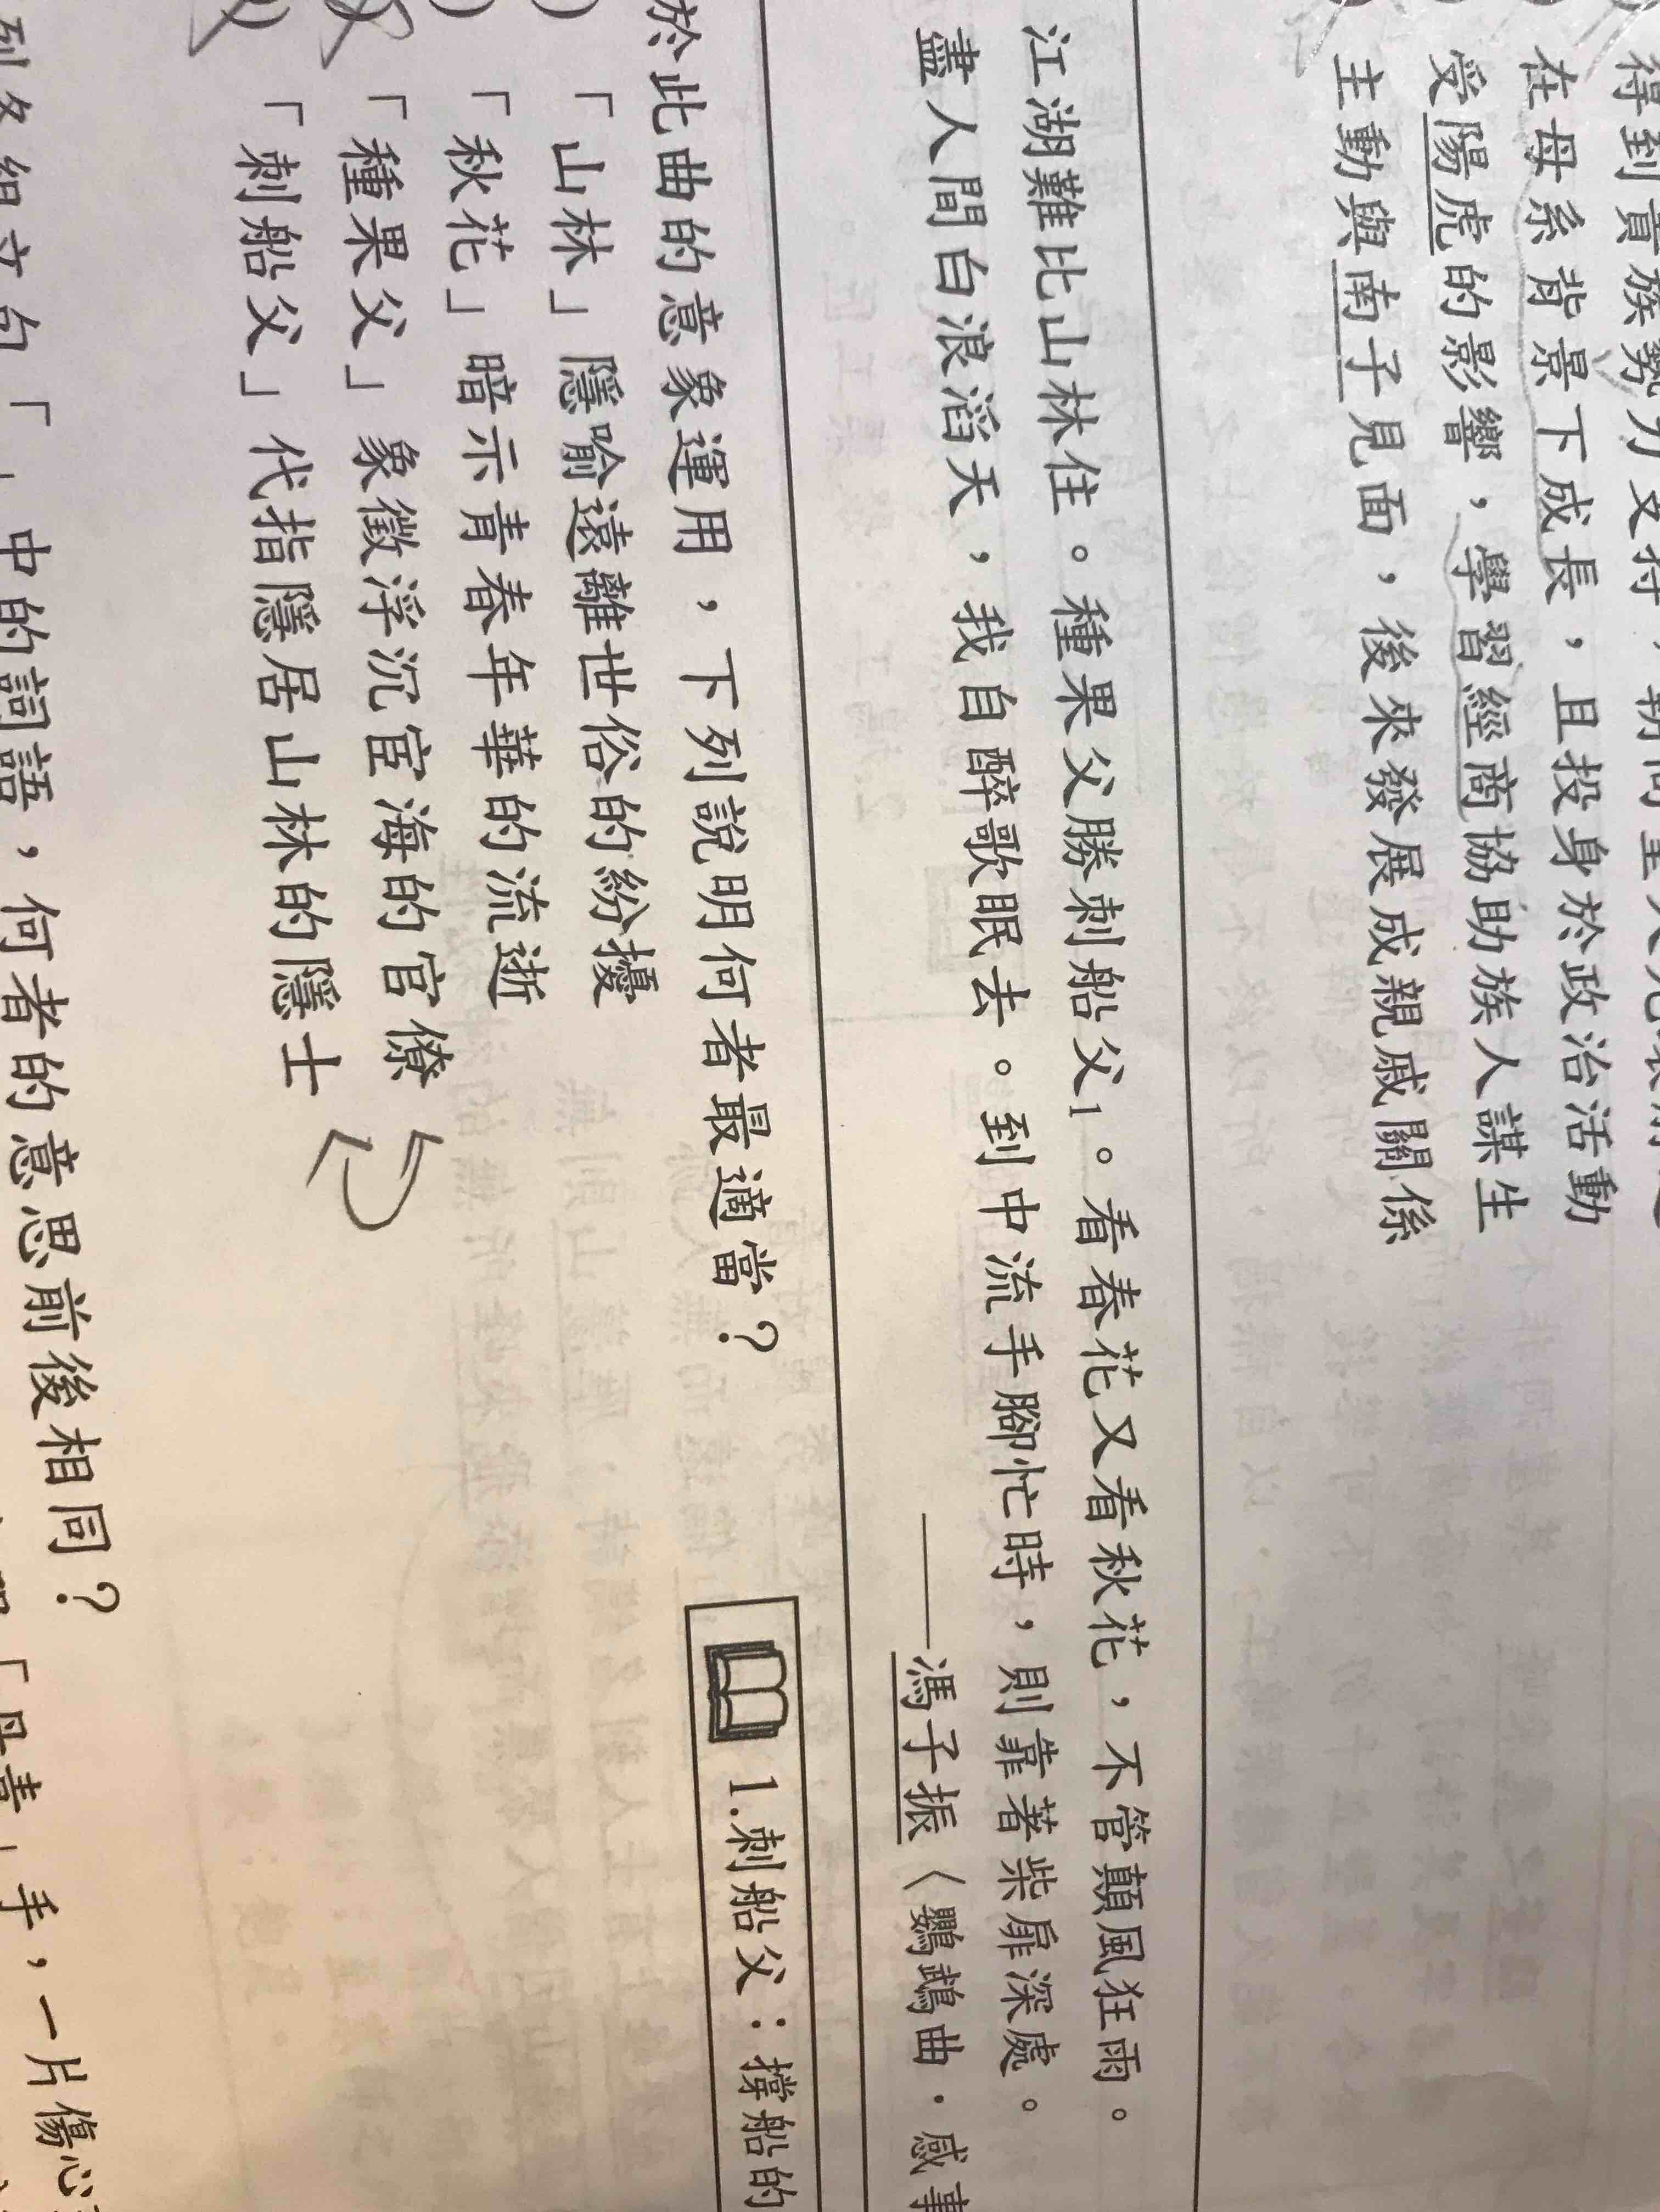 在母系背景下成長，且投身於政治活動
受陽虎的影響，學習經商協助族人謀生
主動與南子見面，後來發展成親戚關係
江湖難比山林住。種果父勝刺船父1。看春花又看秋花，不管顛風狂雨。
盡人間白浪滔天，我自醉歌眠去。到中流手腳忙時，則靠著柴扉深處。
——馮子振〈鸚鵡曲．感事
於此曲的意象運用，下列說明何者最適當？
1.刺船父：撐船的
「山林」隱喻遠離世俗的紛擾
「秋花」暗示青春年華的流逝
「種果父」象徵浮沉宦海的官僚
「刺船父」代指隱居山林的隱士
列各組文句「」中的詞語，何者的意思前後相同？
手，一片傷心